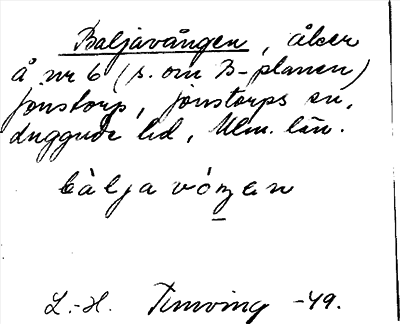 Baljavången, åker
å nr 6 (s. om B-planen)
Jonstorp, Jonstorps sn,
Luggude hd, Mlm. län.
bàljavóŋen
L.-H. Temving -49.